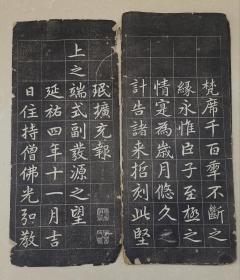 梵席千百年不斷之
緣永惟臣子至極之
情寔為歲月悠久之
計告諸来招刻此堅
珉擴充報
上之端式副發源之望
延祐四年十一月吉
日住持僧佛光弘教